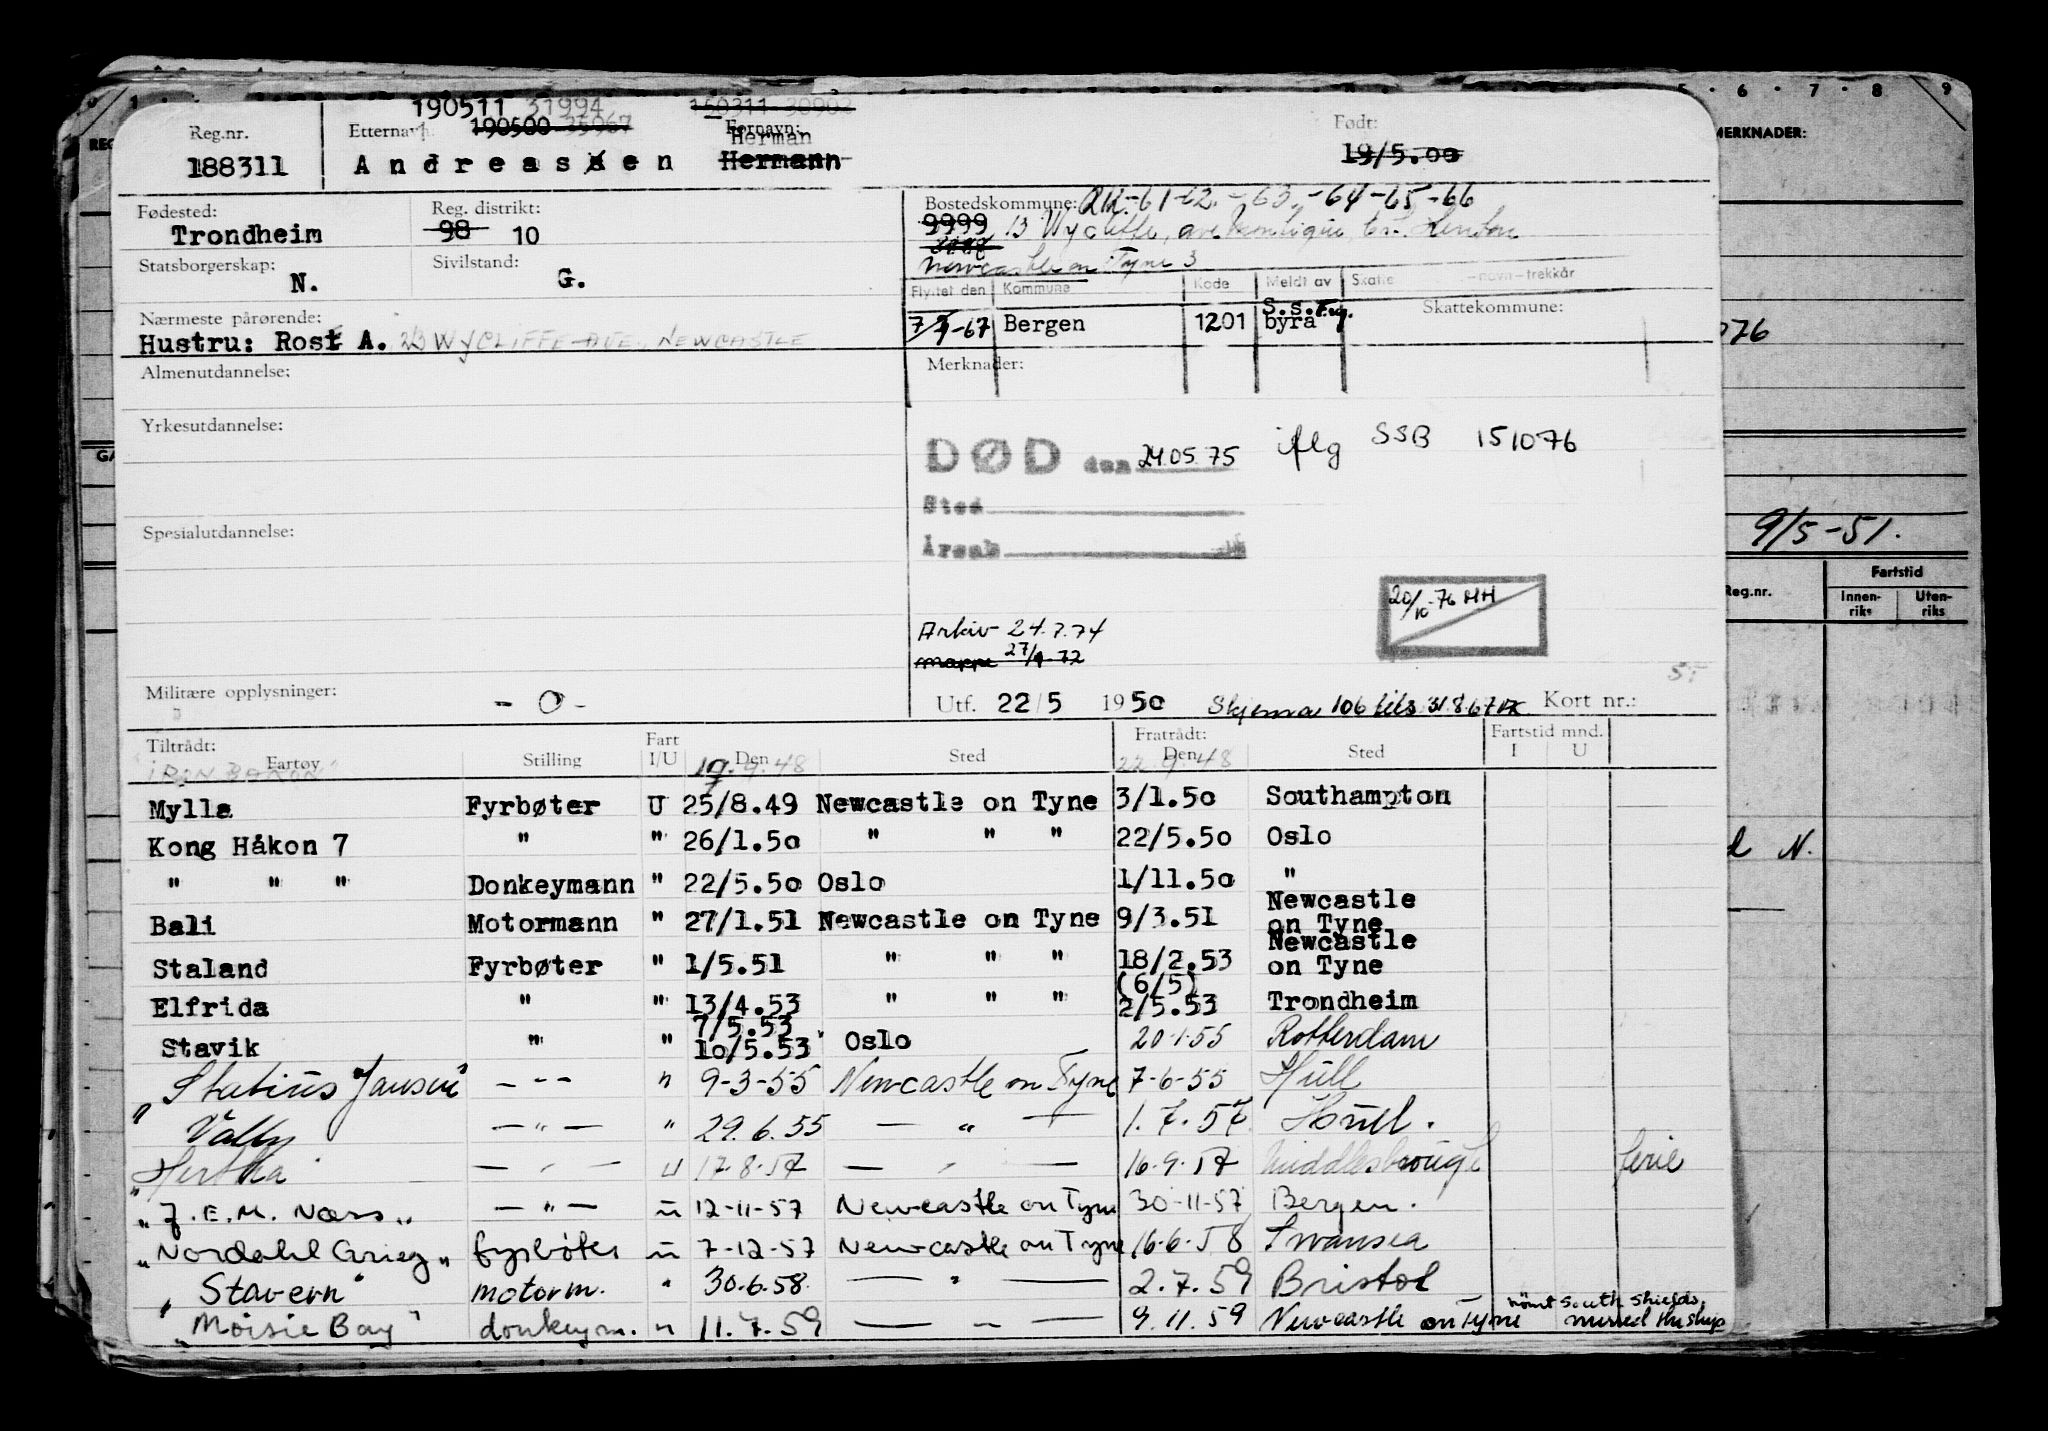 190511 31994 150311 30902
Reg.nr. Etternavn: 190500 35967 Fornavn: Født:
Herman
188311 Andreassen Hermann 19/5.00
Fødested: Reg. distrikt: Bostedskommune: -61-62.-63.-64-65-66
Trondheim 98 10 9999 13 Wycliffe, ave
Statsborgerskap: Sivilstand: Newcastle on Tyne 3
N. G.
Flyttet den Kommune Kode Meldt av Skatte -navn-trekkår
Nærmeste pårørende: Skattekommune:
Hustru: Rose A. 23 WYCLIFFE AVE, NEWCASTLE
7/7-67 Bergen 1201 S.s. byrå
Almenutdannelse: Merknader:
Yrkesutdannelse:
DØD den 24.05.75 iflg SSB 151076
Sted
Årsak
Spesialutdannelse:
20/10-76 HH
Arkiv 24.7.74
mappe 27/9-72
Militære opplysninger: -0- Utf. 22/5 1950 Skjema 106 31.8.67 Kort nr.:
Tiltrådt: Fratrådt: Fartstid mnd.
Fartøy Stilling Fart I/U Den Sted Den Sted I U
"IRON BARON" 19.9.48 22.9.48
Mylla Fyrbøter U 25/8.49 Newcastle on Tyne 3/1.50 Southampton
Kong Håkon 7 " " 26/1.50 " " " 22/5.50 Oslo
" " " Donkeymann " 22/5.50 Oslo 1/11.50 "
Bali Motormann " 27/1.51 Newcastle on Tyne 9/3.51 Newcastle on Tyne
Staland Fyrbøter " 1/5.51 " " " 18/2.53 Newcastle on Tyne
Elfrida " " 13/4.53 " " " (6/5) 2/5.53 Trondheim
Stavik " " 7/5.53 10/5.53 Oslo 20-1-55 Rotterdam
"Statius Jansen" -"- " 9-3-55 Newcastle on Tyne 7-6-55 Hull
Vally -"- " 29.6.55 - " - 1.7.57 Hull.
"Hertha" - " - u 17.8.57 - " - 16.9.57 Middlesbrough ferie
"J.E.M. Næss" - " - u 12-11-57 Newcastle on Tyne 30-11-57 Bergen.
"Nordahl Grieg" fyrbøter u 7-12-57 Newcastle on Tyne 16-6-58 Swansea
"Stavern" motorm. " 30.6.58. - " - 2.7.59 Bristol
"Moisie Bay" donkeym. " 11.7.59 - " - 9.11.59 Newcastle on Tyne rømt South Shields. missed the ship
5 . 6 . 7 . 8 9
MERKNADER:
9/5-51.
Reg.nr. Fartstid
Innen-riks Uten-riks
N.